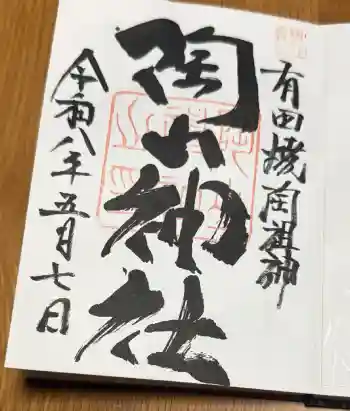 有田焼陶祖神
陶山神社
令和八年五月七日